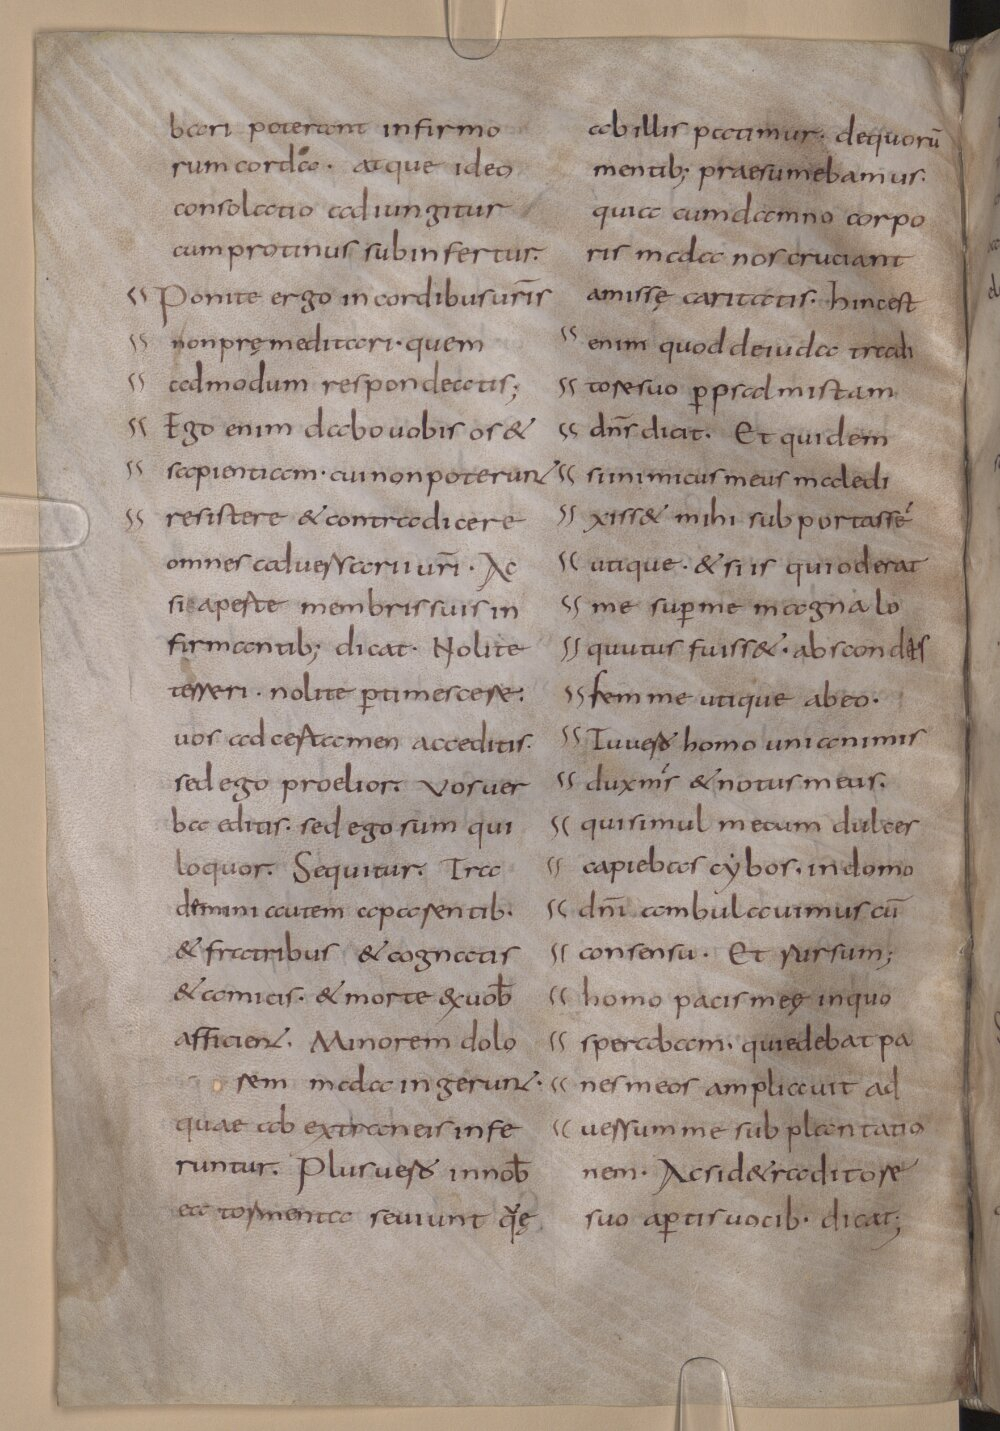 bari poterant infirmo
rum corda. atque ideo
consolatio adiungitur
cum protinus subinfertur.
Ponite ergo in cordibus ur̄is
non pręmeditari. quem
admodum respondeatis;
Ego enim dabo uobis os &
sapientiam. cui non poterunt
resistere & contradicere
omnes aduersarii ur̄i. Ac
si aperte membris suis in
firmantib; dicat. Nolite
terreri. nolite ꝑtimescere.
uos ad certamen acceditis.
sed ego proelior. Vos uer
ba editis. sed ego sum qui
loquor. Sequitur. Tra
demini autem a parentib.
& fratribus & cognatis
& amicis. & morte ex uob̄
afficient. Minorem dolo
rem mala ingerunt.
quae ab extraneis infe
runtur. Plus uero in nob̄
ea tormenta seuiunt q̄ę
ab illis patimur. de quorū
mentib; praesumebamus.
quia cum damno corpo
ris mala nos cruciant
amissę caritatis. hinc est
enim quod de iuda tradi
tore suo ꝑ psalmistam
dn̄s dicit. Et quidem
si inimicus meus maledi
xiss& mihi subportassē
utique. & si is qui oderat
me suꝑ me magna lo
quutus fuiss&. abscondis
sem me utique ab eo.
Tu uero homo unianimis
dux m̄s & notus meus.
qui simul mecum dulces
capiebas cybos. in domo
dn̄i ambulauimus cū
consensu. Et rursum;
homo pacis meę in quo
sperabam. qui edebat pa
nes meos ampliauit ad
uersum me subplantatio
nem. Ac si de traditore
suo aꝑtis uocib. dicat;